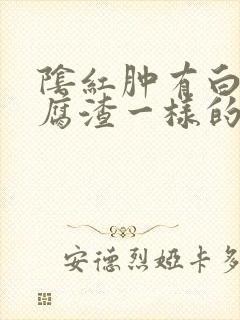 陰紅肿有白
腐渣一樣的
安德烈婭卡多